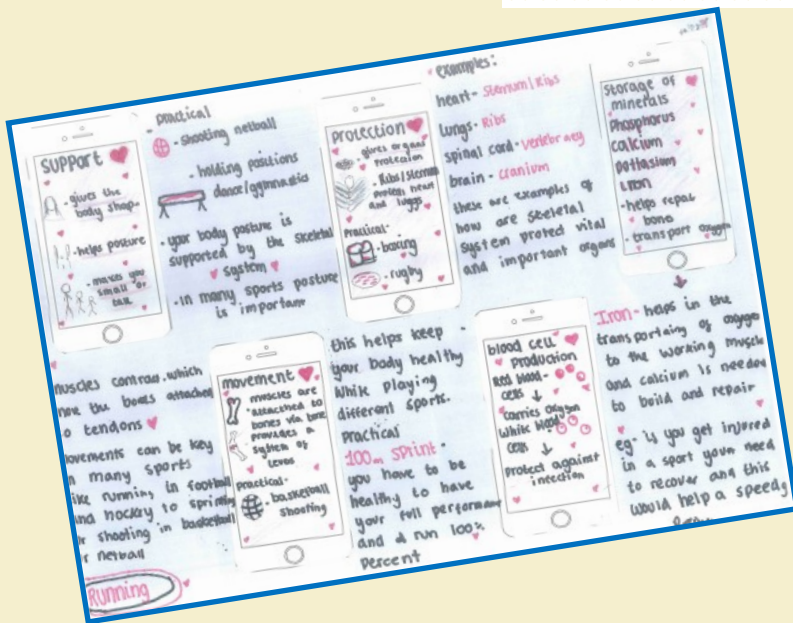 support
- gives the
body shape
- helps posture
- makes you
small or
tall
- practical
- shooting netball
- holding positions
dance/gymnastics
- your body posture is
supported by the skeletal
system
- in many sports posture
is important
protection
- gives organs
protection
- Ribs/sternum
protect heart
and lungs
practical-
- boxing
- rugby
examples:
heart- sternum/Ribs
lungs- Ribs
spinal cord- vertebraey
brain- cranium
these are examples of
how are skeletal
system proted vital
and important organs
storage of
minerals
Phosphorus
calcium
pottasium
iron
-helps repair
bone
- transport oxygen
muscles contract which
move the bones attached
to tendons
movements can be key
in many sports
like running in football
and hockey to sprinting
or shooting in basketball
or netball
Running
movement
muscles are
attatched to
bones via bone
provides a
system of
levas
practical-
- basketball
shooting
this helps keep -
your body healthy
while playing
different sports.
Practical
100m sprint-
you have to be
healthy to have
your full performance
and run 100%
percent
blood cell
production
Red blood-
cells ↓
carries oxygen
White blood-
cells ↓
protect against
infection
Iron- helps in the
transportaing of oxyges
to the working muscle
and calcium is needed
to build and repair
eg- is you get injured
in a sport youn need
to recover and this
would help a speedy